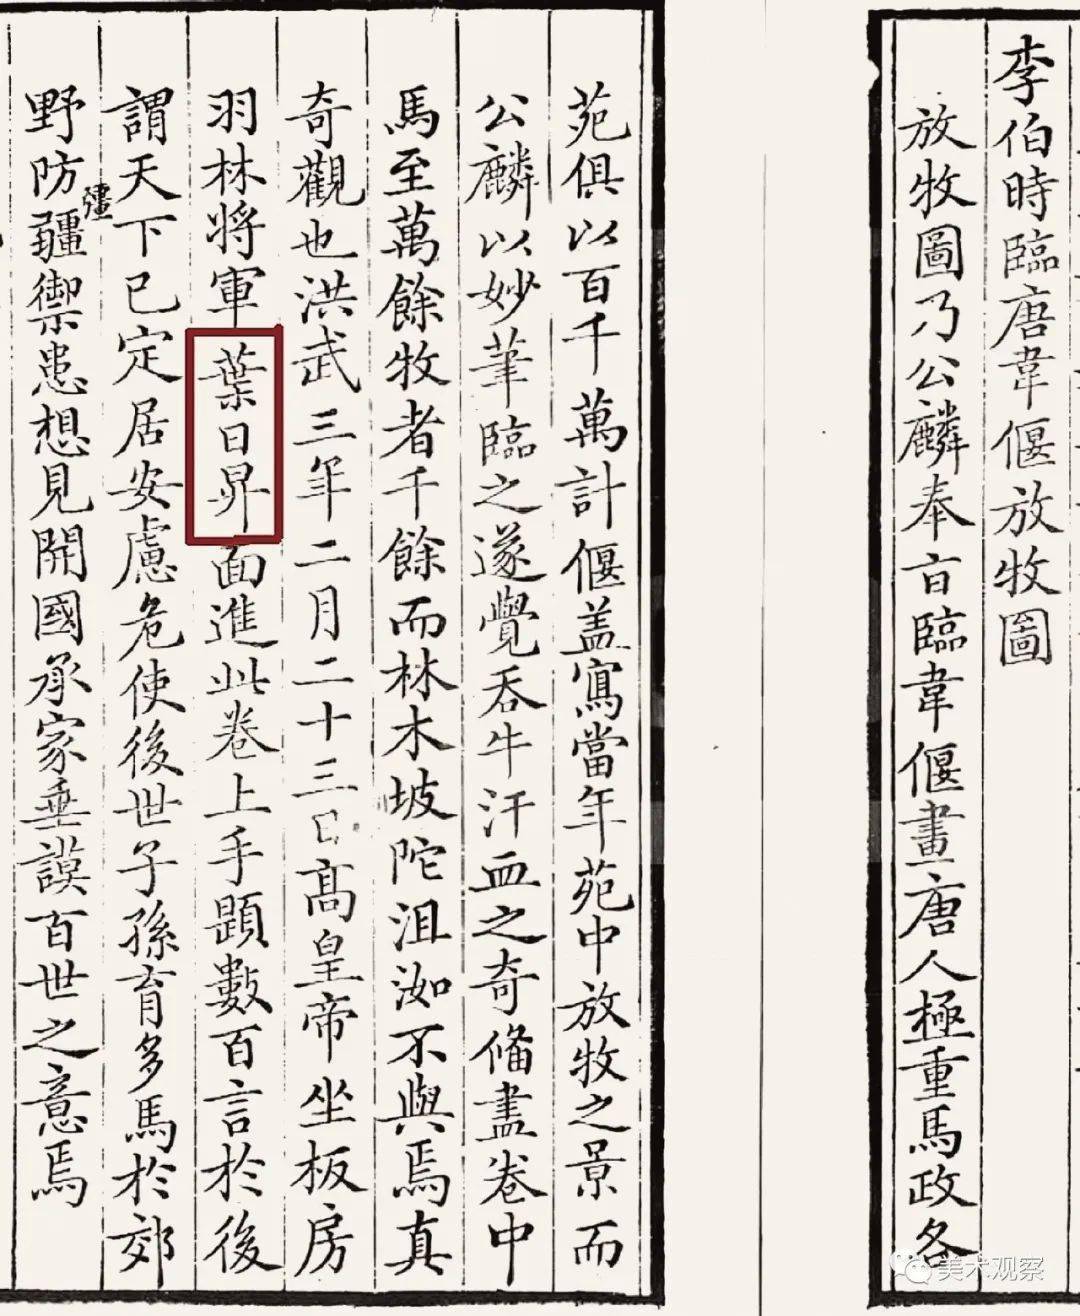 李伯時臨唐韋偃放牧圖
放牧圖乃公麟奉旨臨韋偃畫唐人極重馬政各
苑俱以百千萬計偃盖寫當年苑中放牧之景而
公麟以妙筆臨之遂覺吞牛汗血之奇俻盡卷中
馬至萬餘牧者千餘而林木坡陀沮洳不與焉真
奇觀也洪武三年二月二十三日高皇帝坐板房
羽林将軍葉日昇面進此卷上手題數百言於後
謂天下已定居安慮危使後世子孫育多馬於郊
彊
野防疆禦患想見開國承家垂謨百世之意焉
美术观察